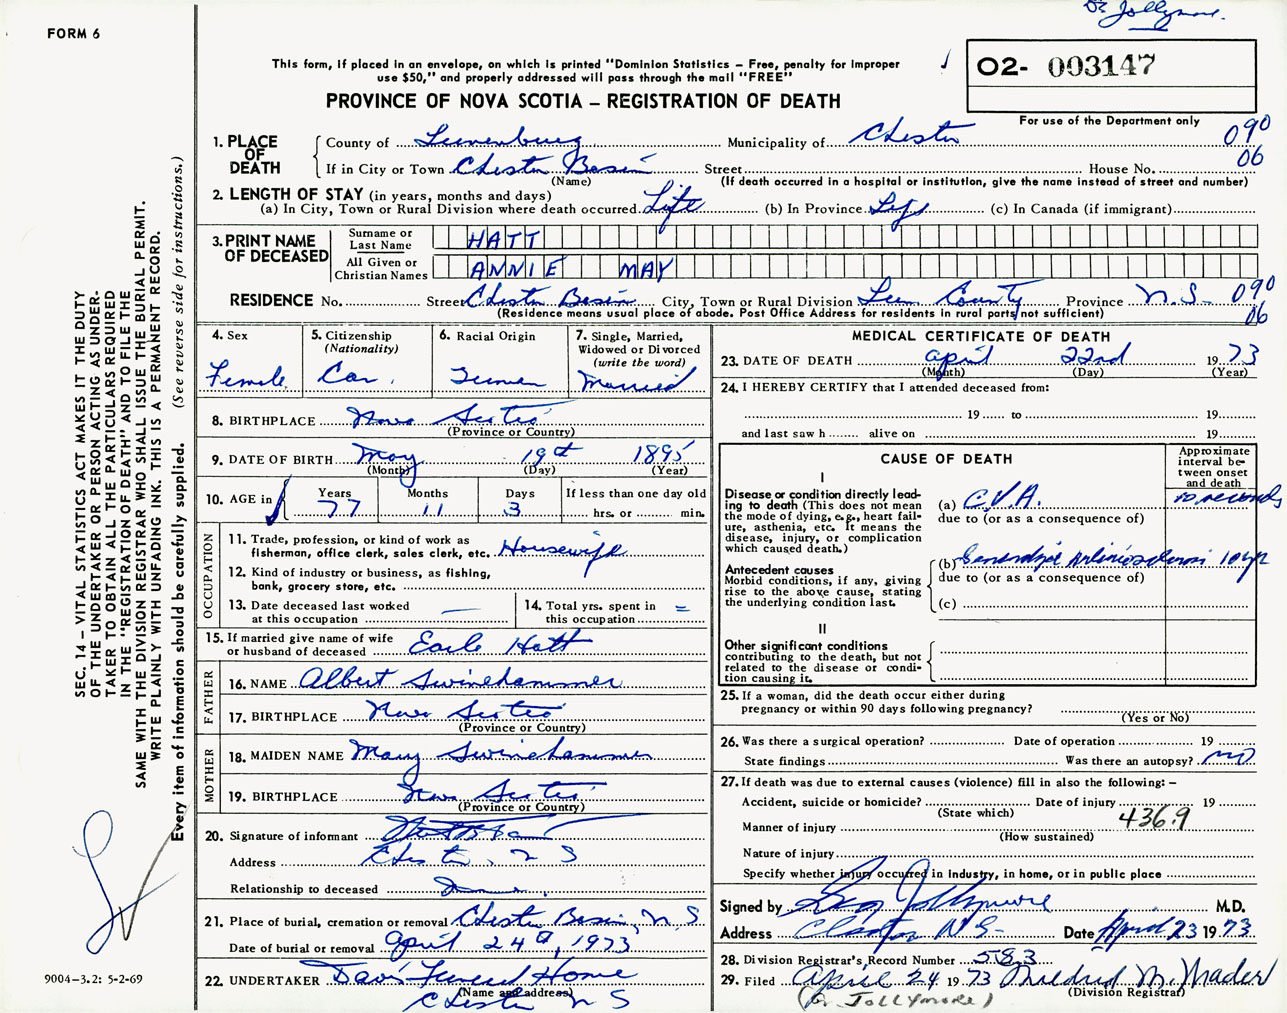 Dr Jollymore.
FORM 6
This form, if placed in an envelope, on which is printed "Dominion Statistics – Free, penalty for improper
use $50," and properly addressed will pass through the mail "FREE"
PROVINCE OF NOVA SCOTIA – REGISTRATION OF DEATH
O2- 003147
For use of the Department only
1. PLACE OF DEATH County of Lunenburg Municipality of Chester 090
If in City or Town Chester Basin Street House No. 06
(Name) (If death occurred in a hospital or institution, give the name instead of street and number)
2. LENGTH OF STAY (in years, months and days)
(a) In City, Town or Rural Division where death occurred. Life (b) In Province Life (c) In Canada (if immigrant)
3. PRINT NAME OF DECEASED Surname or Last Name HATT
All Given or Christian Names ANNIE MAY
RESIDENCE No. Street Chester Basin City, Town or Rural Division Lun County Province N.S- 090
(Residence means usual place of abode. Post Office Address for residents in rural parts not sufficient) 06
4. Sex
Female
5. Citizenship
(Nationality)
Can.
6. Racial Origin
7. Single, Married,
Widowed or Divorced
(write the word)
Married
8. BIRTHPLACE Nova Scotia
(Province or Country)
9. DATE OF BIRTH May 19th 1895
(Month) (Day) (Year)
10. AGE in Years Months Days If less than one day old
77 11 3 hrs. or min.
OCCUPATION
11. Trade, profession, or kind of work as
fisherman, office clerk, sales clerk, etc. Housewife
12. Kind of industry or business, as fishing,
bank, grocery store, etc.
13. Date deceased last worked
at this occupation —
14. Total yrs. spent in
this occupation =
15. If married give name of wife
or husband of deceased Earle Hatt
FATHER
16. NAME Albert Swinehammer
17. BIRTHPLACE Nova Scotia
(Province or Country)
MOTHER
18. MAIDEN NAME Mary Swinehammer
19. BIRTHPLACE Nova Scotia
(Province or Country)
20. Signature of informant
Address Chester, N S
Relationship to deceased
21. Place of burial, cremation or removal Chester Basin, N. S
Date of burial or removal April 24th, 1973
22. UNDERTAKER Davis Funeral Home
(Name and address)
Chester N S
MEDICAL CERTIFICATE OF DEATH
23. DATE OF DEATH April 22nd 1973
(Month) (Day) (Year)
24. I HEREBY CERTIFY that I attended deceased from:
19 to 19
and last saw h alive on 19
CAUSE OF DEATH
Approximate
interval be-
tween onset
and death
I
Disease or condition directly lead-
ing to death (This does not mean
the mode of dying, e.g., heart fail-
ure, asthenia, etc. It means the
disease, injury, or complication
which caused death.)
(a) C.V.A. 10 seconds
due to (or as a consequence of)
Antecedent causes
Morbid conditions, if any, giving
rise to the above cause, stating
the underlying condition last.
(b) Generalized Arteriosclerosis 10 yr
due to (or as a consequence of)
(c)
II
Other significant conditions
contributing to the death, but not
related to the disease or condi-
tion causing it.
25. If a woman, did the death occur either during
pregnancy or within 90 days following pregnancy?
(Yes or No)
26. Was there a surgical operation? Date of operation 19
State findings Was there an autopsy? no
27. If death was due to external causes (violence) fill in also the following: –
Accident, suicide or homicide? Date of injury 19
(State which) 436.9
Manner of injury
(How sustained)
Nature of injury
Specify whether injury occurred in industry, in home, or in public place
Signed by Jollymore M.D.
Address N S- Date April 23 1973
28. Division Registrar's Record Number 583
29. Filed April 24 1973 Mildred M. Mader
(Division Registrar)
(Dr. JOLLYMORE)
SEC. 14 – VITAL STATISTICS ACT MAKES IT THE DUTY
OF THE UNDERTAKER OR PERSON ACTING AS UNDER-
TAKER TO OBTAIN ALL THE PARTICULARS REQUIRED
IN THE "REGISTRATION OF DEATH" AND TO FILE THE
SAME WITH THE DIVISION REGISTRAR WHO SHALL ISSUE THE BURIAL PERMIT.
WRITE PLAINLY WITH UNFADING INK. THIS IS A PERMANENT RECORD.
Every item of information should be carefully supplied. (See reverse side for instructions.)
9004–3.2: 5-2-69